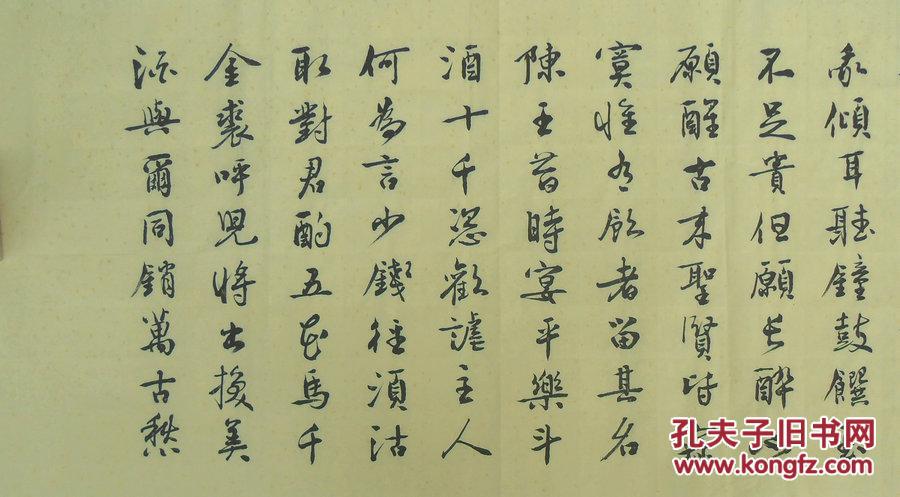 我傾耳聽鐘鼓饌
不足貴但願長醉不
願醒古來聖賢皆寂
寞惟有飲者留其名
陳王昔時宴平樂斗
酒十千恣歡謔主人
何為言少錢徑須沽
取對君酌五花馬千
金裘呼兒將出換美
酒與爾同銷萬古愁
孔夫子旧书网
www.kongfz.com